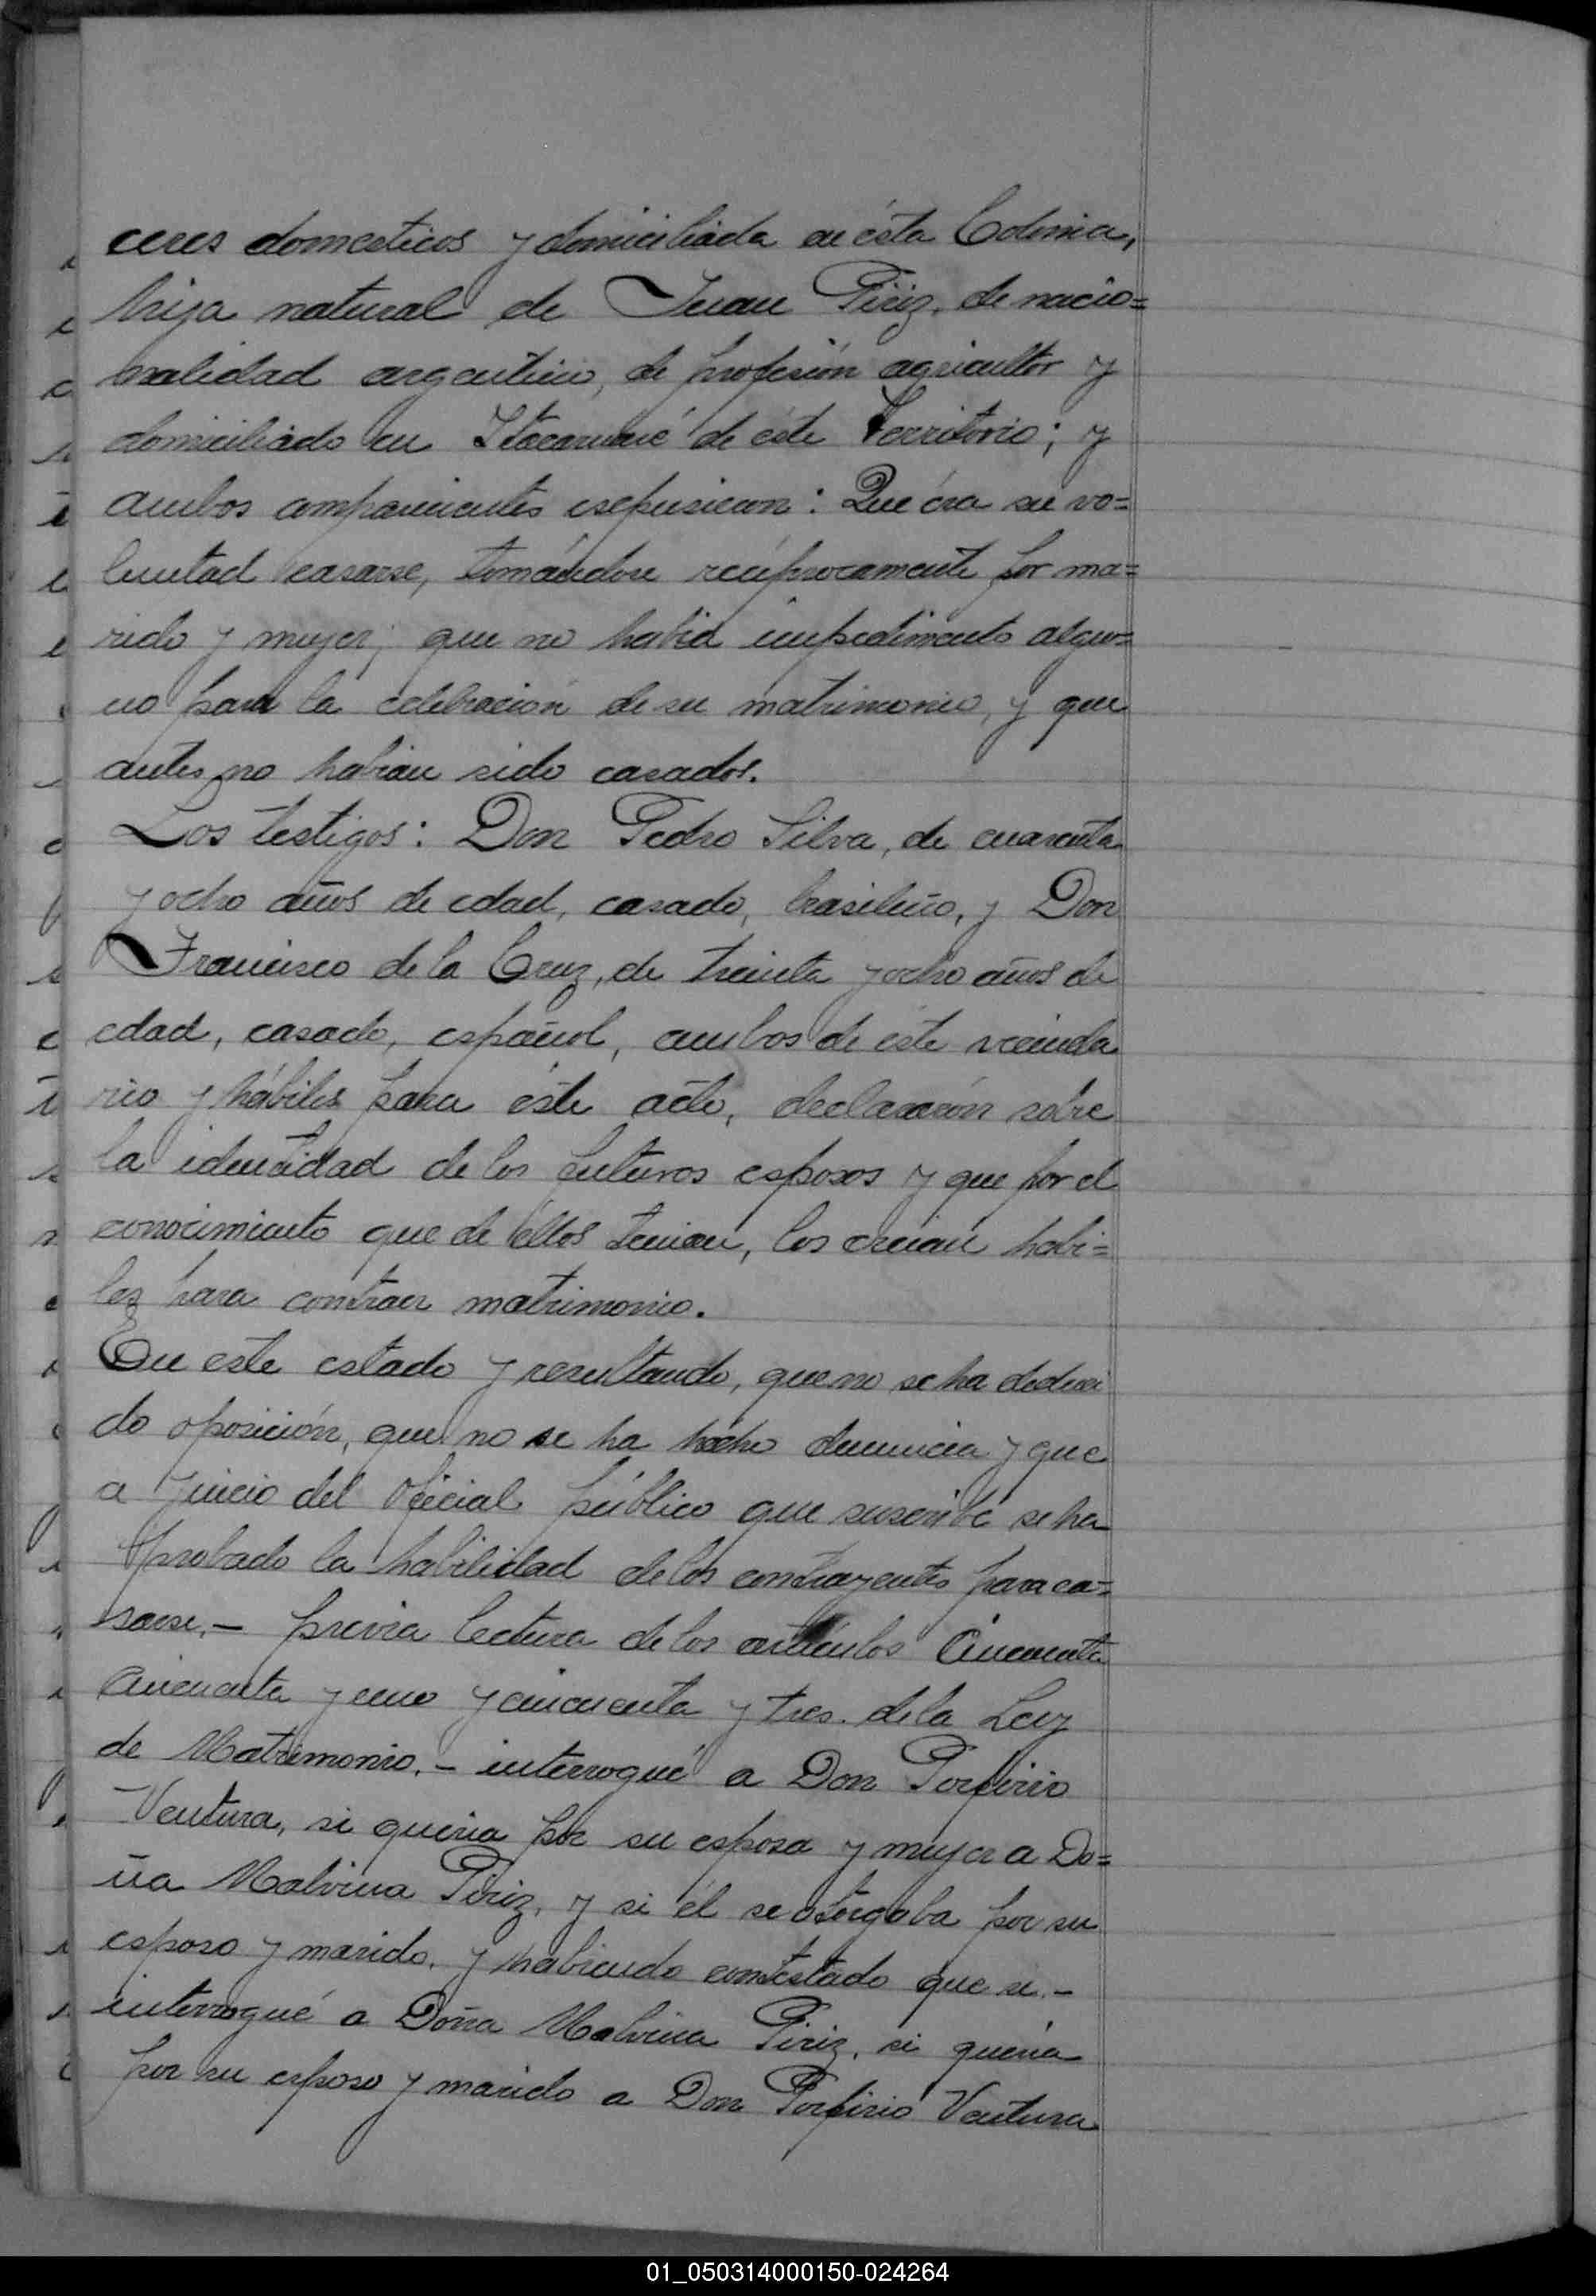 ceres domesticos y domiciliada en ésta Colonia,
hija natural de Juan Piriz, de nacio=
nalidad argentino, de profesión agricultor y
domiciliado en Itacaruaré de éste Territorio; y
ambos comparecientes expusieron: Que éra su vo=
luntad casarse, tomándose recíprocamente por ma=
rido y mujer; que no había impedimento algu=
no para la celebración de su matrimonio, y que
antes no habían sido casados.
Los testigos: Don Pedro Silva, de cuarenta
y ocho años de edad, casado, brasileño, y Don
Francisco de la Cruz, de treinta y ocho años de
edad, casado, español, ambos de éste vecinda
rio y hábiles para éste acto, declararón sobre
la identidad de los futuros esposos y que por el
conocimiento que de éllos tenian, los creian habi=
les para contraer matrimonio.
En este estado y resultando, que no se ha deduci
do oposición, que no se ha hecho denuncia y que
a juicio del Oficial público que suscribe se ha
probado la habilidad de los contrayentes para ca=
sarse.- previa lectura de los artículos Cincuenta
Cincuenta y uno y cincuenta y tres. de la Ley
de Matrimonio.- interrogué a Don Porfirio
Ventura, si queria por su esposa y mujer a Do=
ña Malvina Piriz, y si él se otorgaba por su
esposo y marido, y habiendo contestado que si.-
interrogué a Doña Malvina Piriz, si quería
por su esposo y marido a Don Porfirio Ventura
01_050314000150-024264